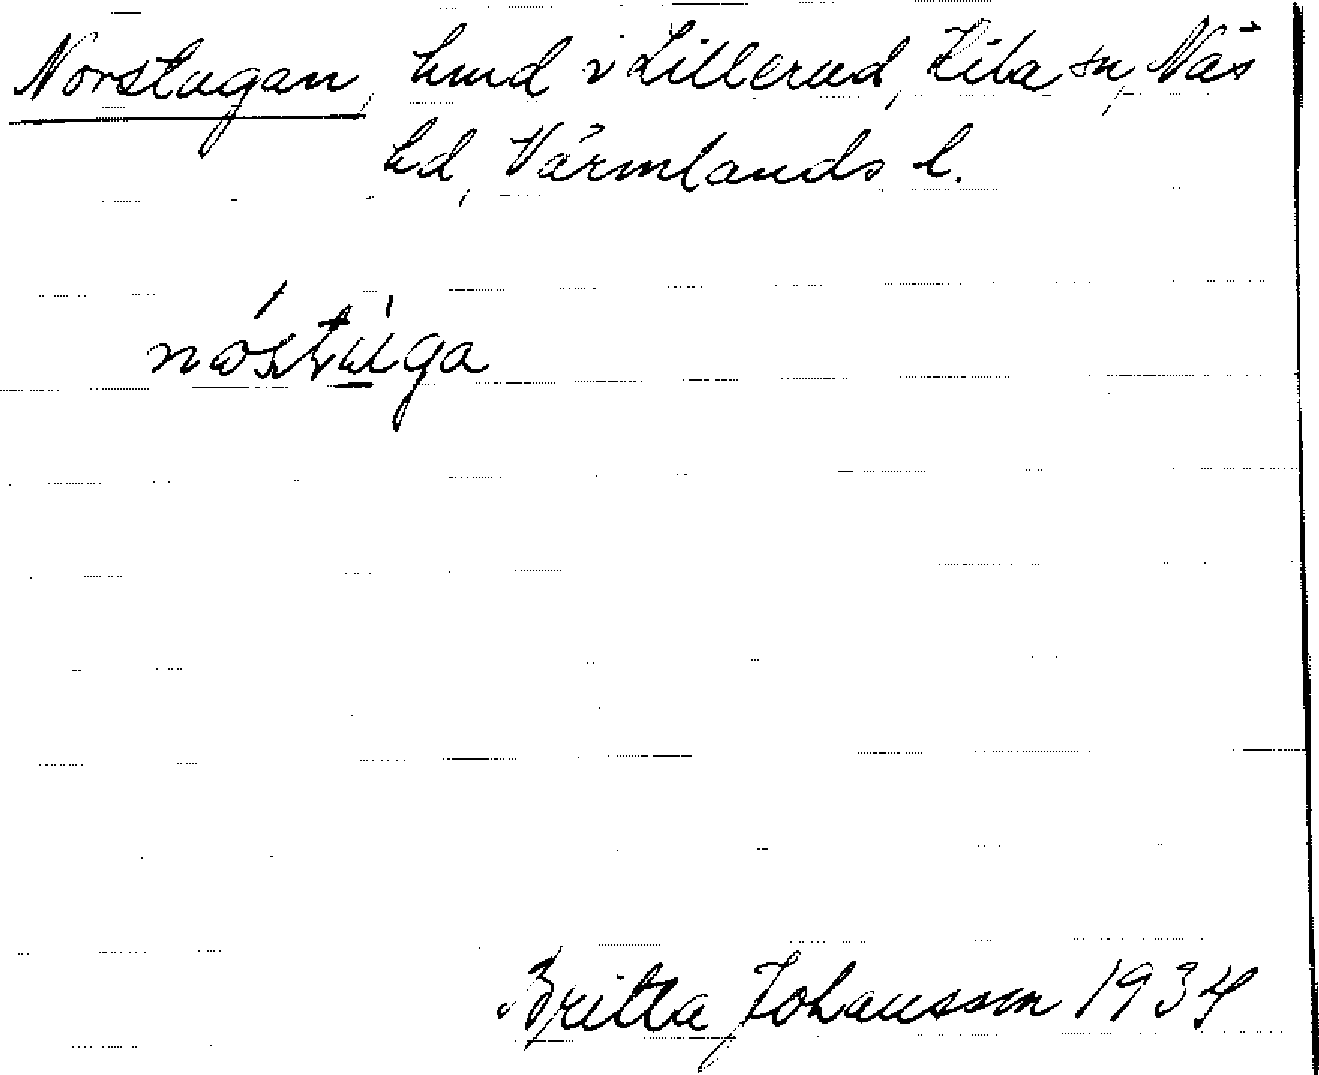 Norstugan, hmd i Lillerud, Kila sn, Näs
hd, Värmlands l.
nǿstùga
Britta Johansson 1934